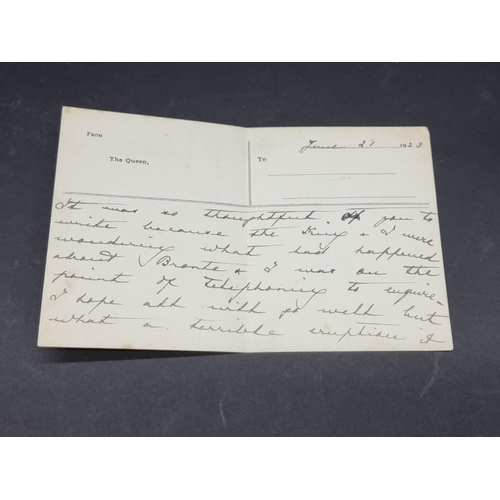 From
The Queen,
To
June 29 1923
It was so thoughtful of you to
write because the King & I were
wondering what had happened
about Bronte & I was on the
point of telephoning to enquire-
I hope all will go well but
what a terrible eruption it